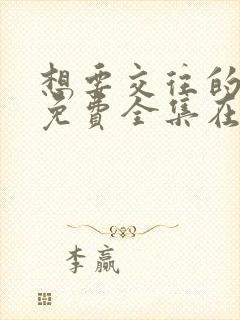 想要交往的
免费全集在
李赢